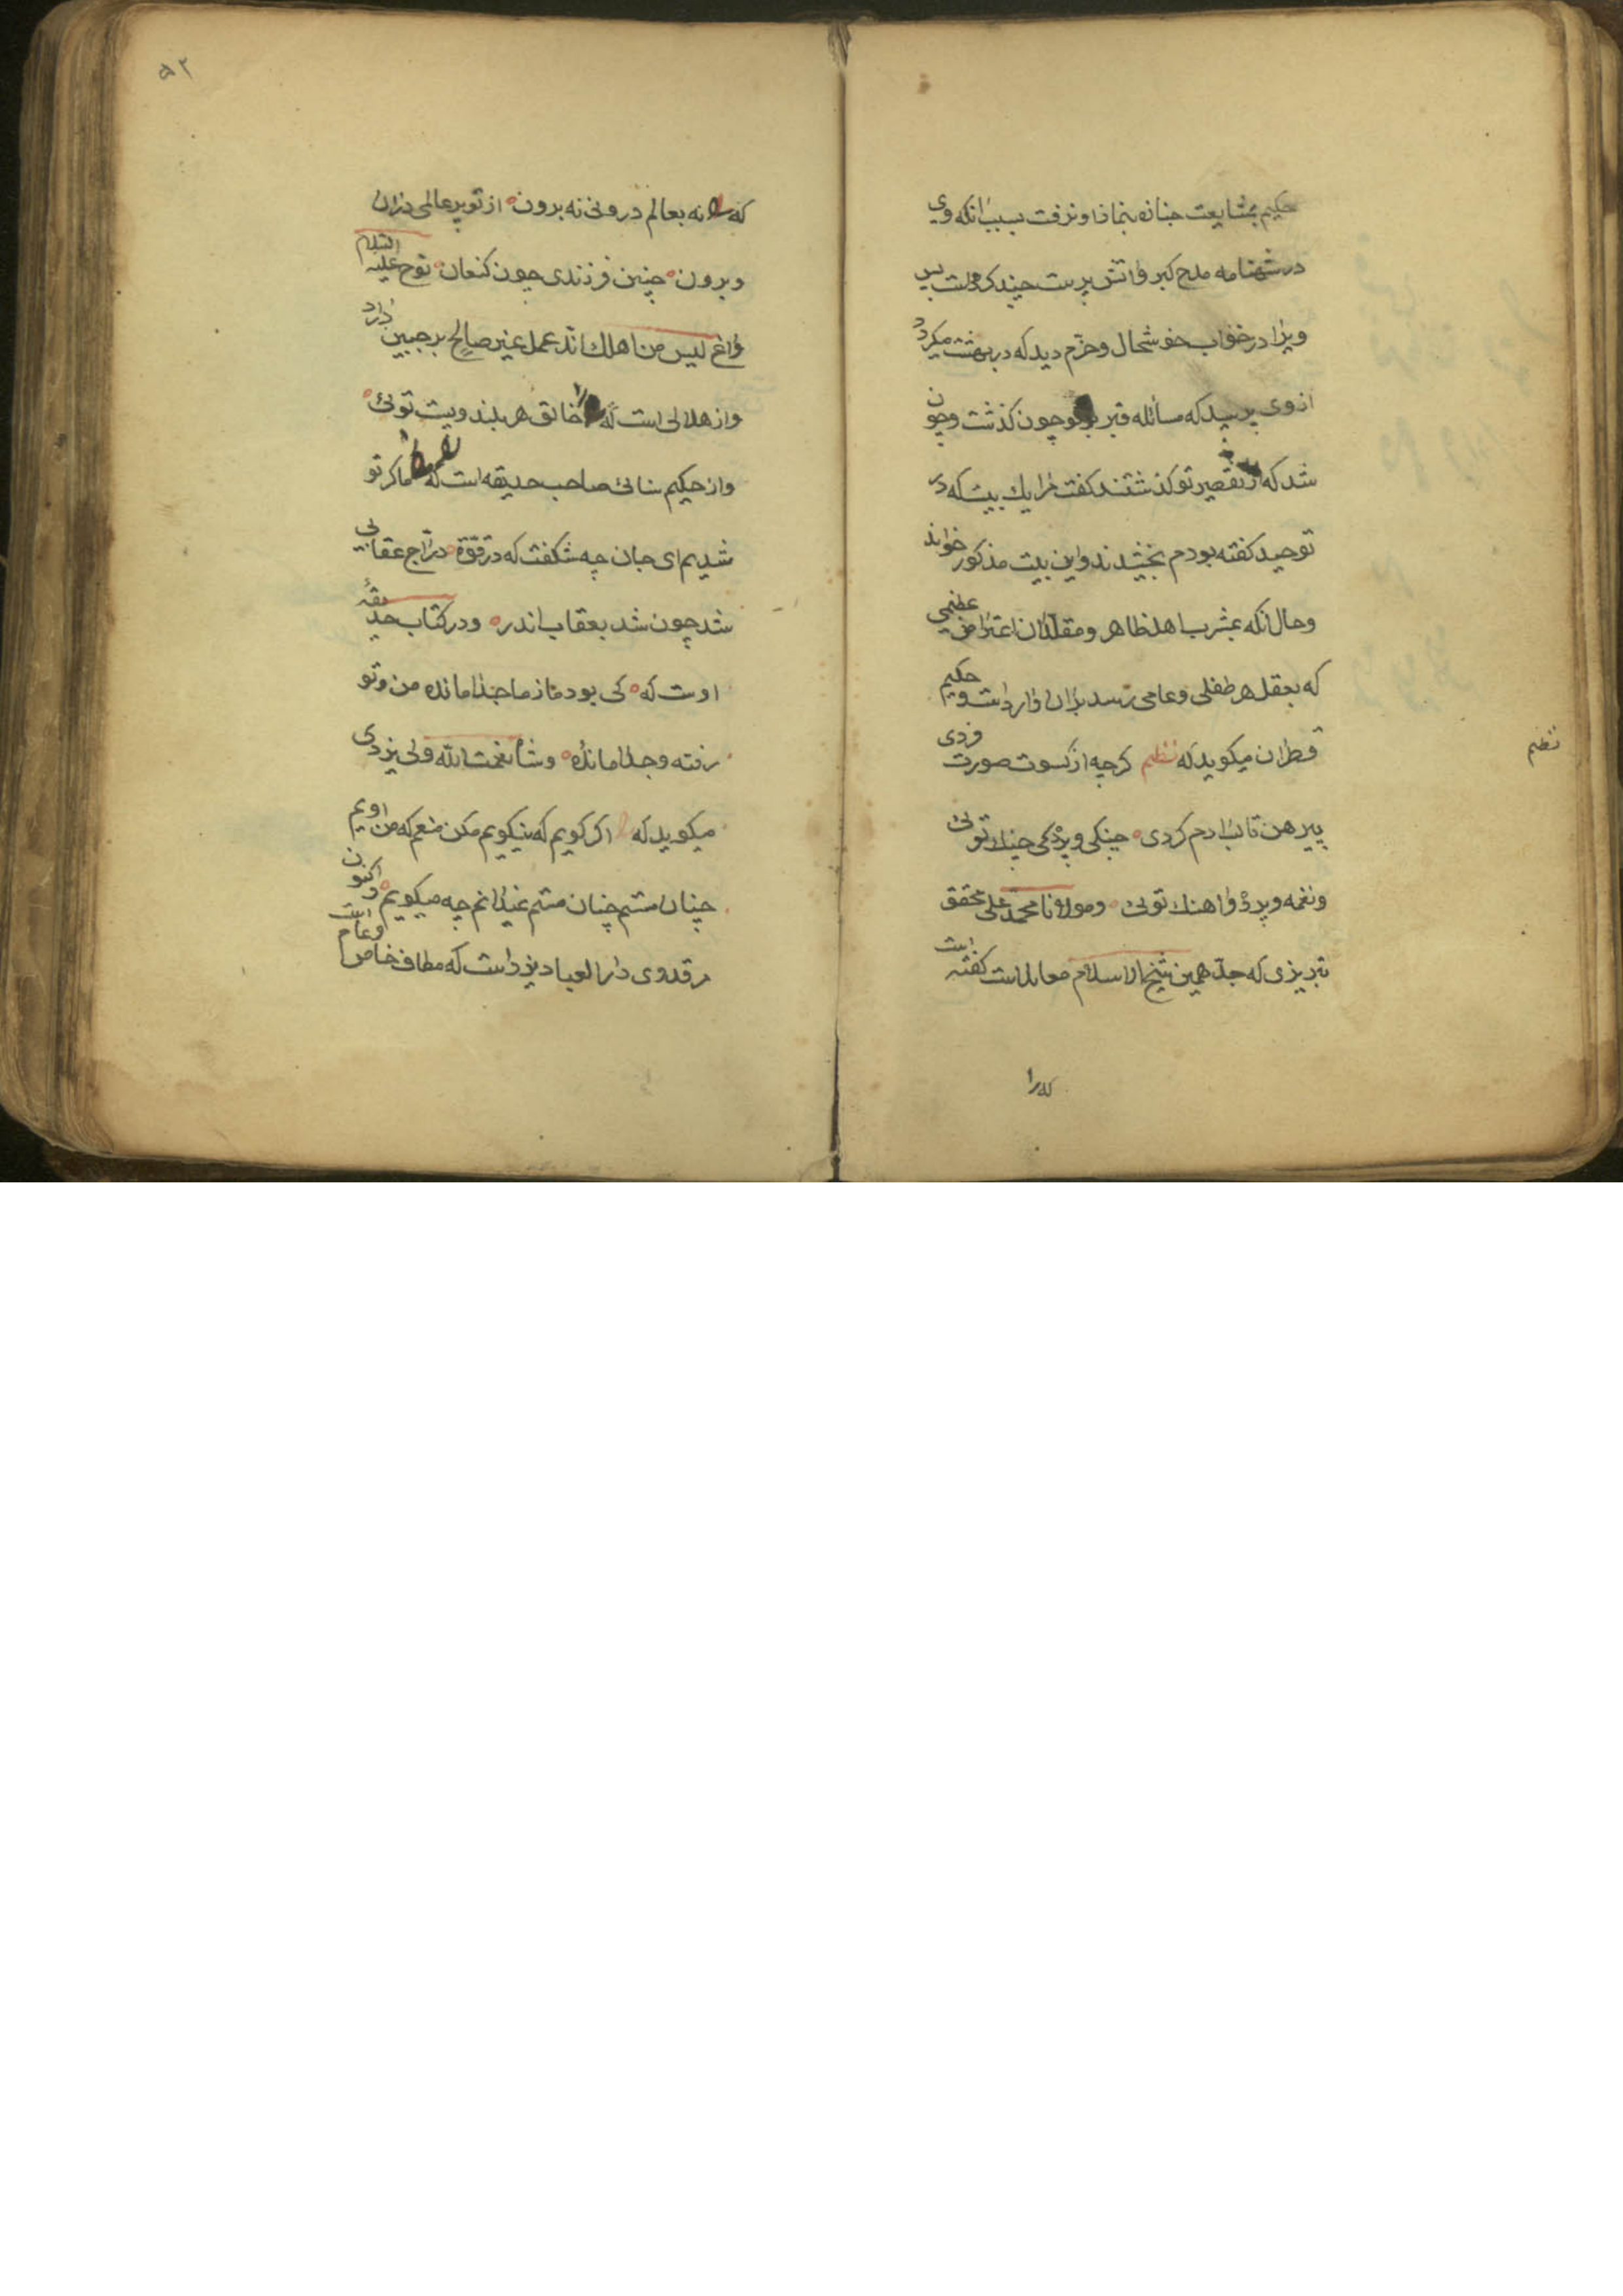 حکیم بمشایعت جنازه بنماز او نرفت بسبب انکه وی
در شهنامه مدح کبر و اتش پرست چند کرده است پس
ویرا در خواب خوشحال و خرم دید که در بهشت میکردد
از وی پرسید که مسائله قبر بر تو چون کذشت و چون
شد که از تقصیر تو کذشتند کفت مرا بیک بیت که در
توحید کفته بودم بخشیدند و این بیت مذکور خواند
وحال انکه بمشرب اهل ظاهر و مقلدان اعتراض عظیمی
که بعقل هر طفلی و عامی رسد بران وارد است و حکیم
قطران میکوید که نظم کرچه از کسوت صورت فردی
نظم
پیرهن تا بسادم کردی چنکی و پردکی چنک توئی
و نغمه و پرده و اهنک توئی و مولانا محمد علی محقق
تبریزی که جد همین شیخ الاسلام معاند است کفته است
که را
۵۲
که نه بعالم درونی نه برون از تو پر عالمی درون
و برون چنین فرزندی چون کنعان نوح علیه السلام
داغ لیس من اهلک انه عمل غیر صالح بر جبین دارد
و از هلالی است که خالق هر بلند و پست توئی
و از حکیم سنائی صاحب حدیقه است که ما کر تو
شدیم ای جان چه شکفت که در قوة دراج عقابی
شد چون شد بعقاب اندر و در کتاب حدیقهٔ
اوست که کی بود ما ز ما جدا مانده من و تو
رفته و جدا مانده و شاه نعمت الله ولی یزدی
میکوید که اکر کویم که نیکویم مکن منعم که من اویم
چنان مستم چنان مستم نمیدانم چه میکویم و اکنون
مرقد وی دار العباد یزد است که مطاف خاص و عام است